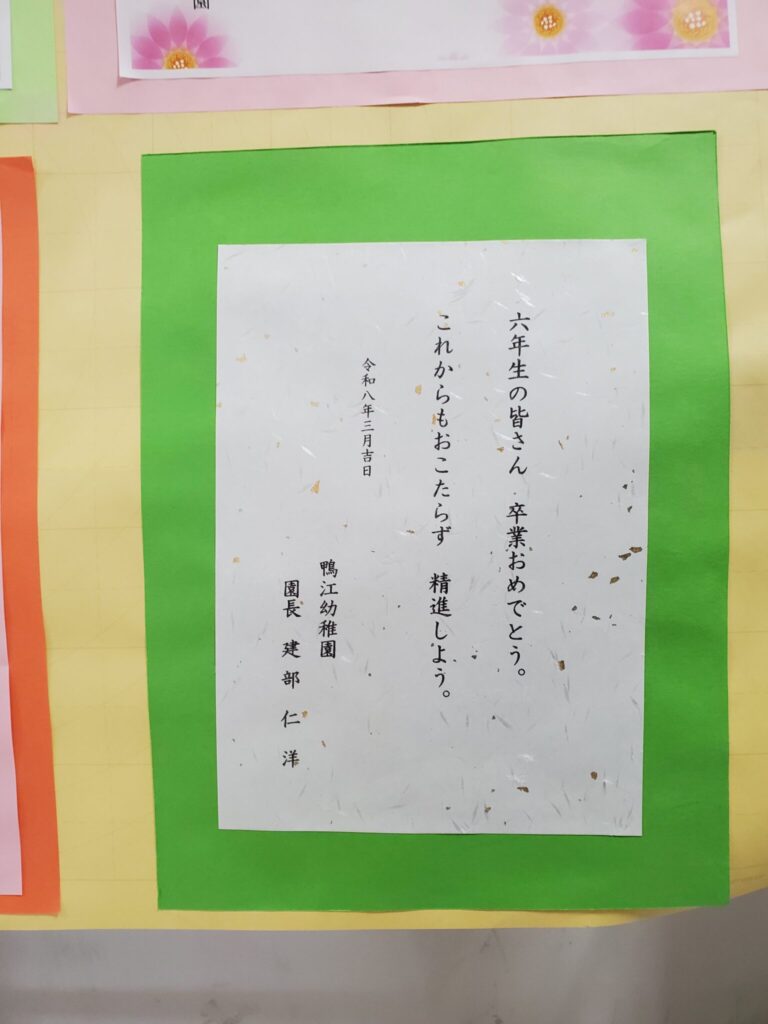 園
六年生の皆さん　卒業おめでとう。
これからもおこたらず　精進しよう。
令和八年三月吉日
鴨江幼稚園
園長　建部　仁洋